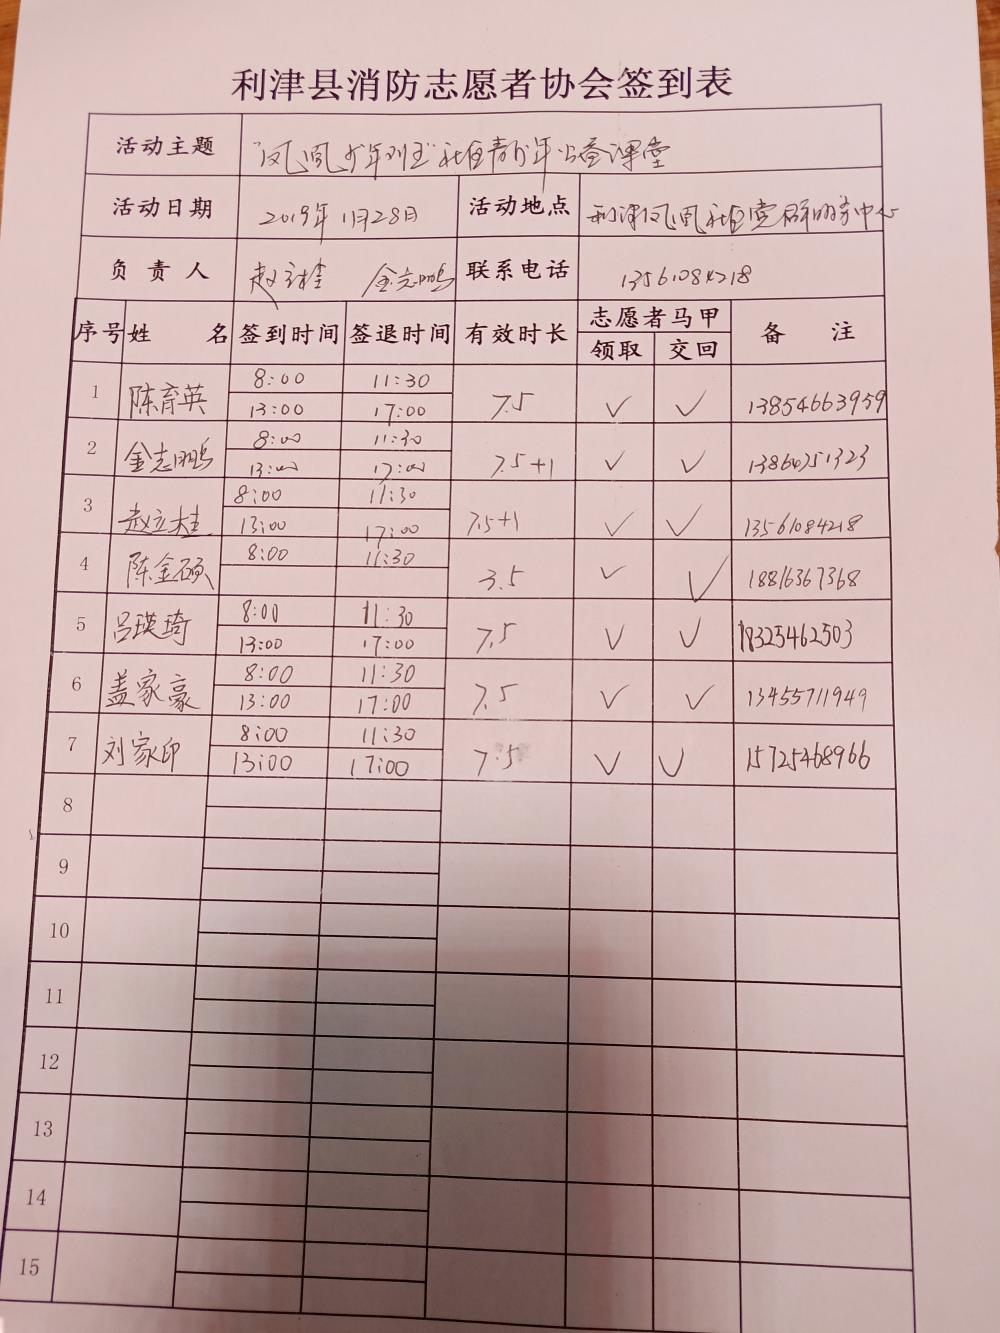 利津县消防志愿者协会签到表
活动主题 "凤凰少年别王"社区青少年公益课堂
活动日期 2019年1月28日 活动地点 利津凤凰社区党群服务中心
负责人 赵立桂 金志鹏 联系电话 13561084218
序号 姓名 签到时间 签退时间 有效时长 志愿者马甲 备注
领取 交回
1 陈育英 8:00 11:30 7.5 ✓ ✓ 13854663959
13:00 17:00
2 金志鹏 8:00 11:30 7.5+1 ✓ ✓ 13860751323
13:00 17:00
3 赵立桂 8:00 11:30 7.5+1 ✓ ✓ 13561084218
13:00 17:00
4 陈金硕 8:00 11:30 3.5 ✓ ✓ 18816367368
5 吕瑛琦 8:00 11:30 7.5 ✓ ✓ 18325462503
13:00 17:00
6 盖家豪 8:00 11:30 7.5 ✓ ✓ 13455711949
13:00 17:00
7 刘家印 8:00 11:30 7.5 ✓ ✓ 15725468966
13:00 17:00
8
9
10
11
12
13
14
15